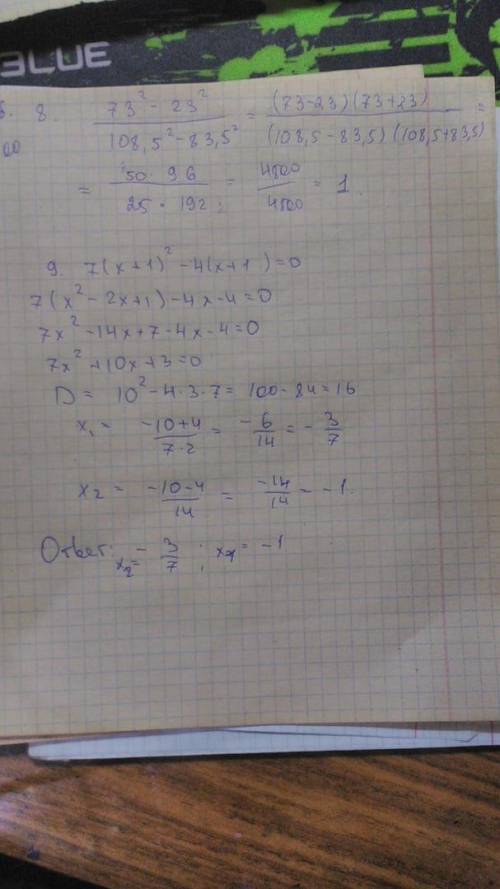 BLUE
8 (73² - 23²)/(108,5² - 83,5²) = ((73-23)(73+23))/((108,5-83,5)(108,5+83,5)) =
= (50 · 96)/(25 · 192) = 4800/4800 = 1.
9. 7(x+1)² - 4(x+1)=0
7(x² - 2x+1) - 4x-4=0
7x² - 14x+7-4x-4=0
7x² +10x+3=0
D = 10² - 4·3·7 = 100-84=16
x₁ = (-10+4)/(7·2) = -6/14 = -3/7
x₂ = (-10-4)/14 = -14/14 = -1.
Ответ: x₂= -3/7 ; x₁= -1